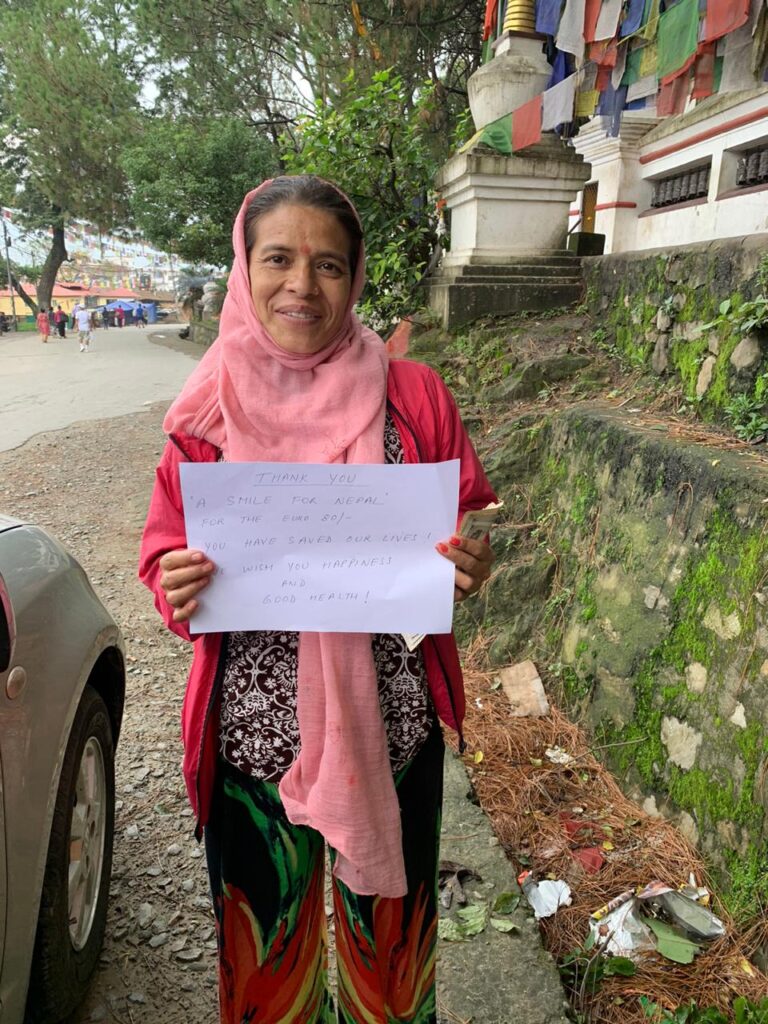 THANK YOU
"A SMILE FOR NEPAL"
FOR THE EURO 80/-
YOU HAVE SAVED OUR LIVES!
WISH YOU HAPPINESS
AND
GOOD HEALTH!